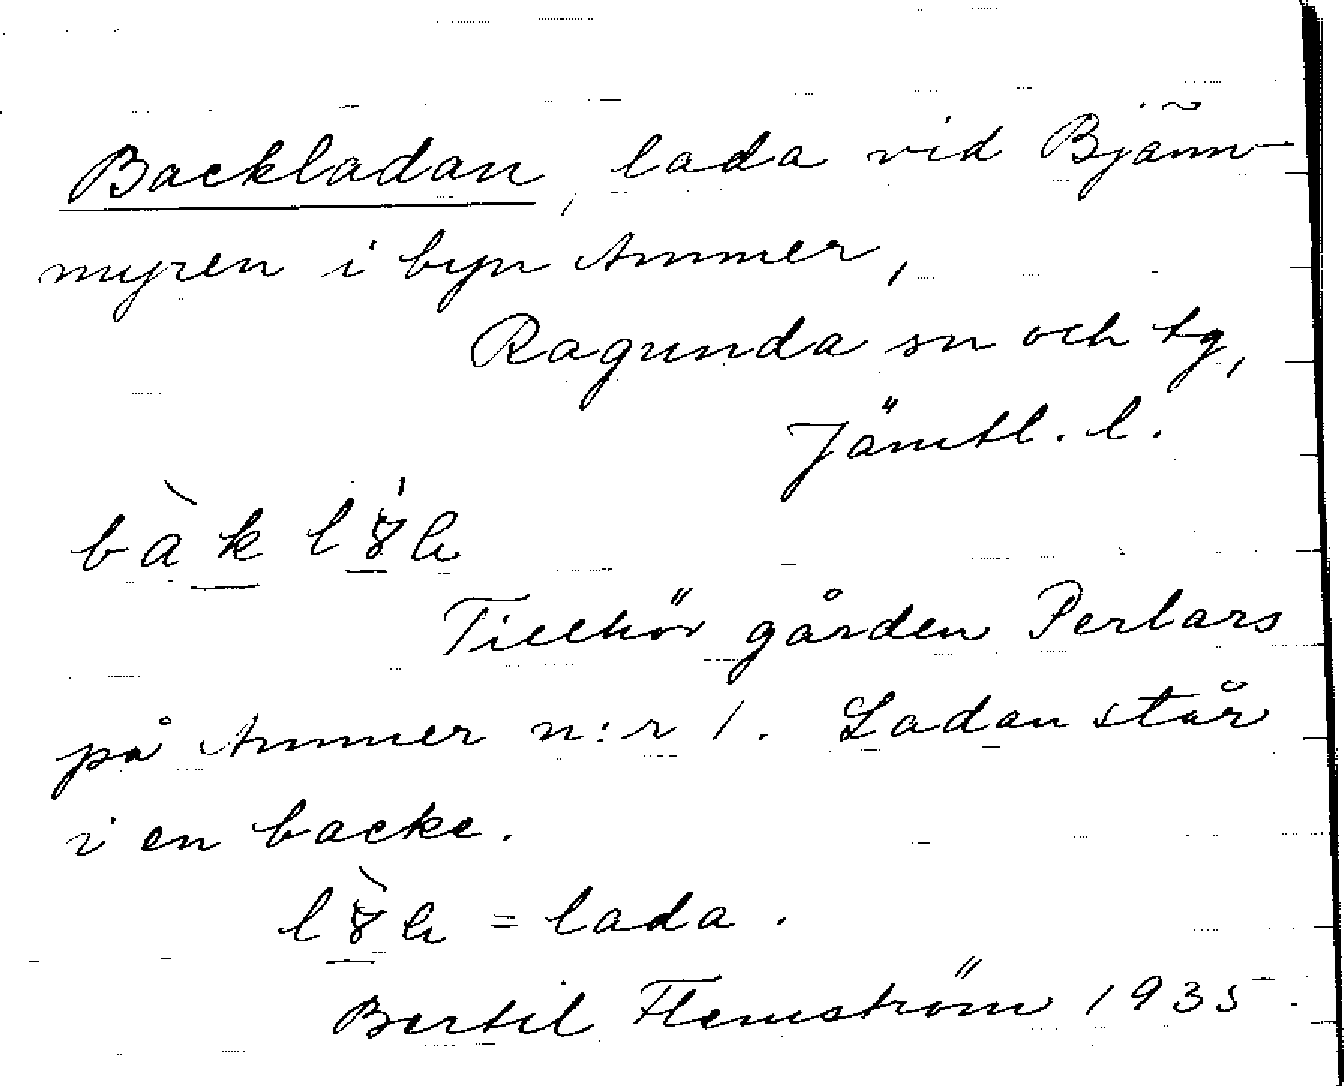 Backladan, lada vid Bjäm-
myren i byn Ammer,
Ragunda sn och tg,
Jämtl. l.
Tillhör gården Perlars
på Ammer n:r 1. Ladan står
i en backe.
= lada.
Bertil Flemström 1935.